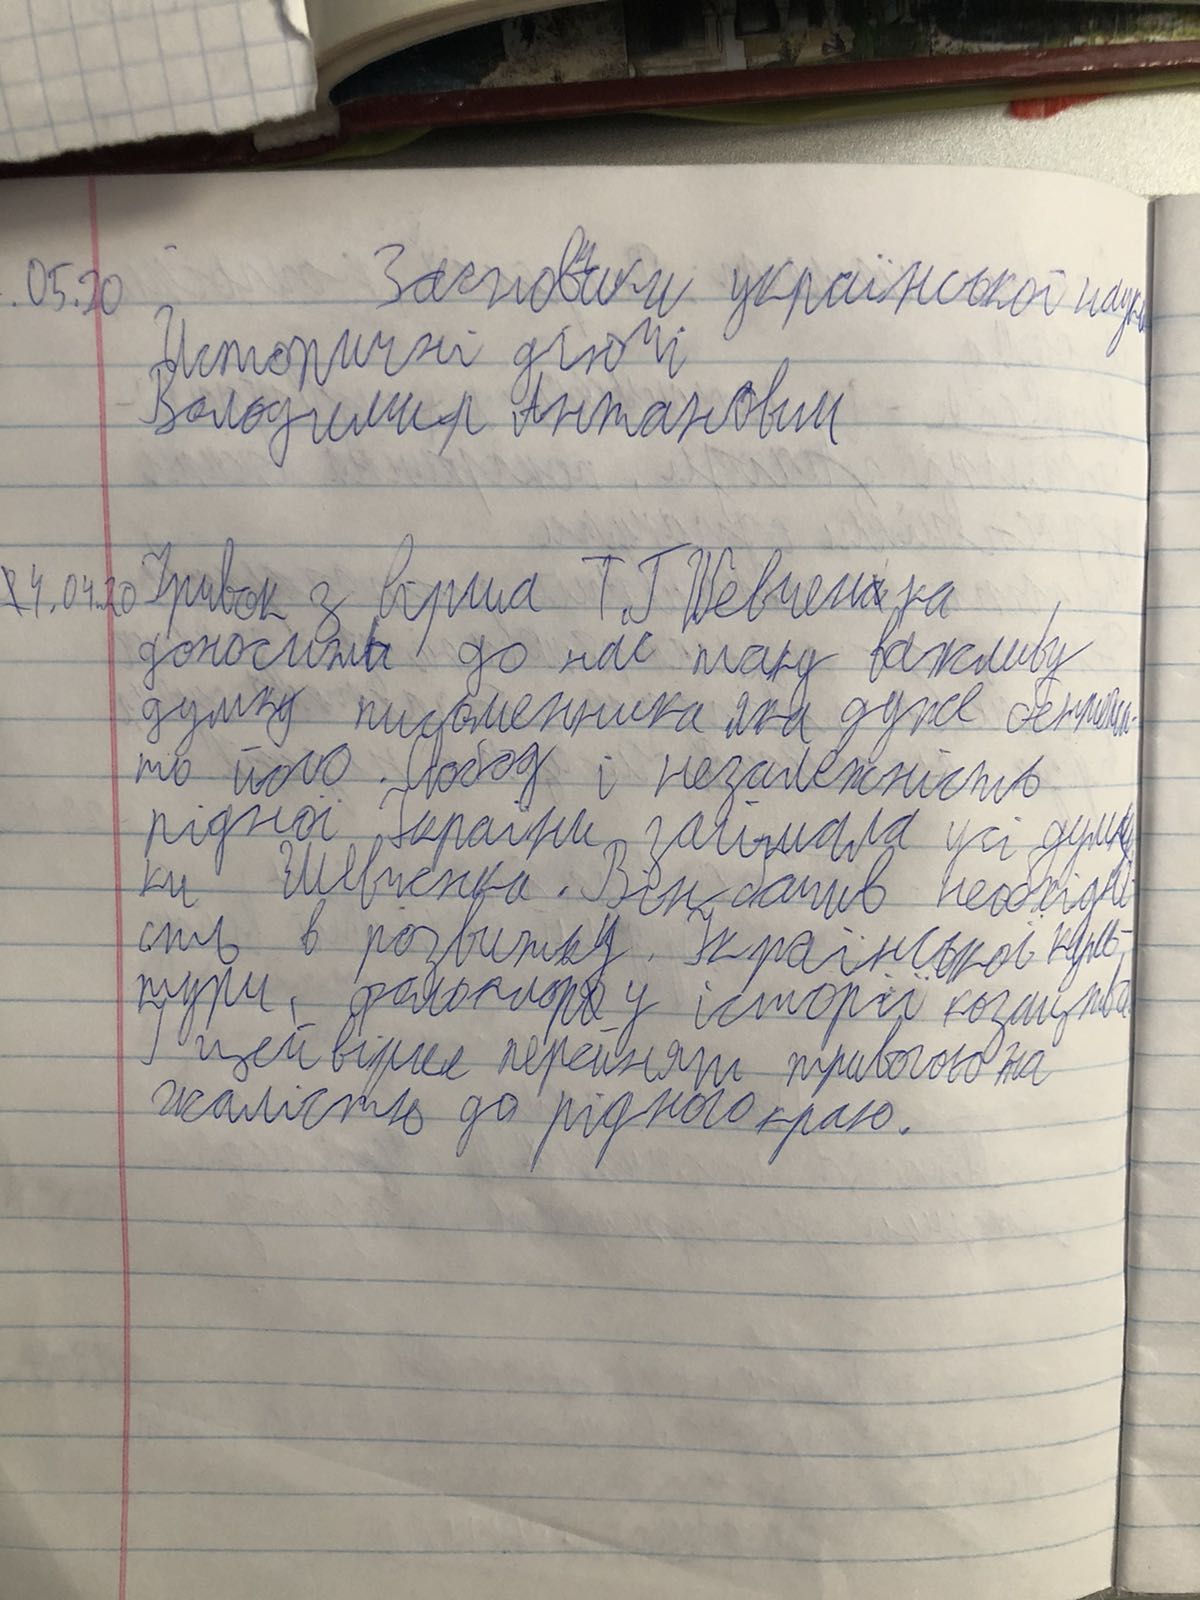 .05.20 Засновники української науки
Історичні діючі
Володимир Антанович
24.04.20 Уривок з вірша Т.Г Шевченка
доносить до нас таку важливу
думку письменника яка дуже бентежи-
ло його. Свобод і незалежність
рідної України займала усі думку
ки Шевченка. Він бачив необхідні
сть в розвитку. Української куль-
тури, фольклору у історії козацтва
І цей вірш перейнят тривогою та
жалістю до рідного краю.